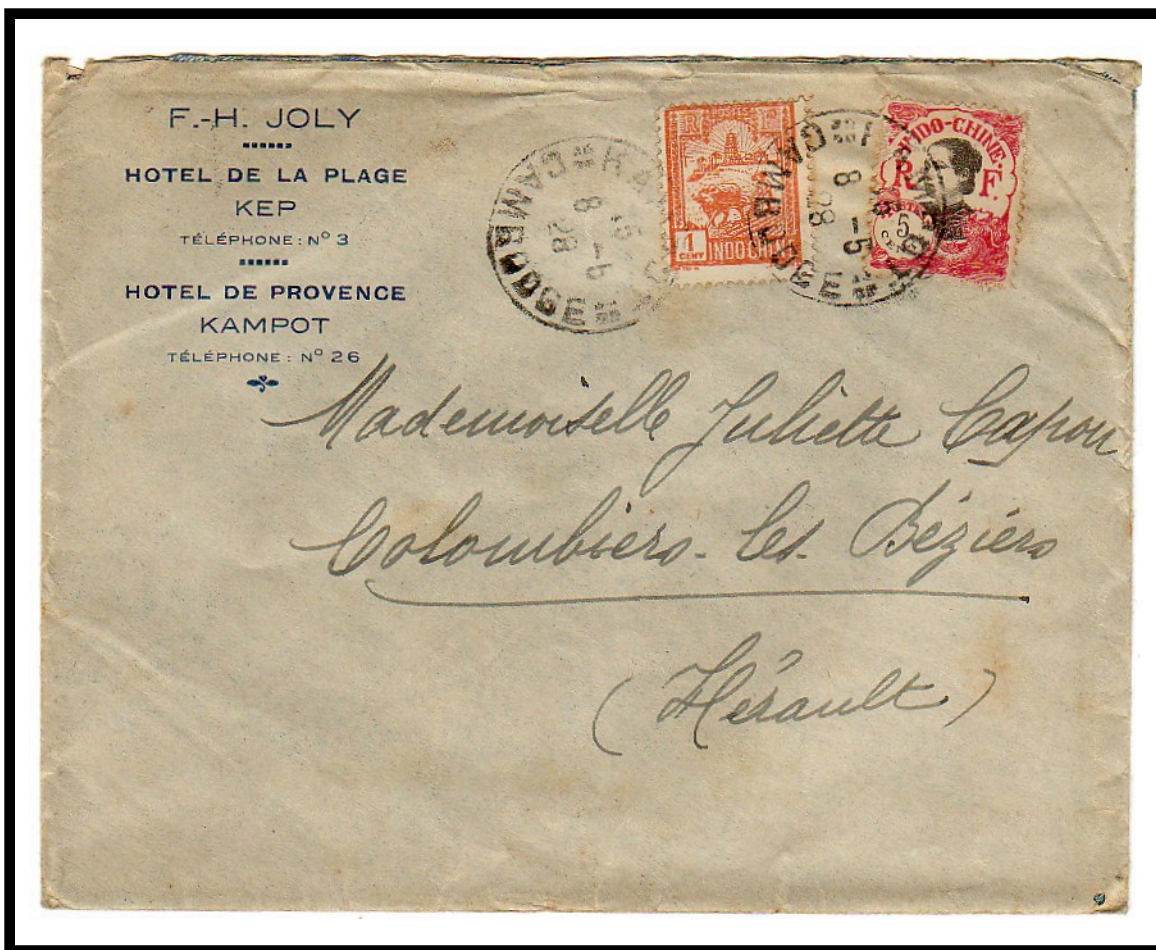 F.-H. JOLY
HOTEL DE LA PLAGE
KEP
TÉLÉPHONE : Nº 3
HOTEL DE PROVENCE
KAMPOT
TÉLÉPHONE : Nº 26
R F
1
CENT
INDOCHI
CAMBODGE
8 -5
28
CAMBODGE
8 -5
28
INDO-CHINE
R F
5
CEN
Mademoiselle Juliette Capon
Colombiers-les-Béziers
(Hérault)